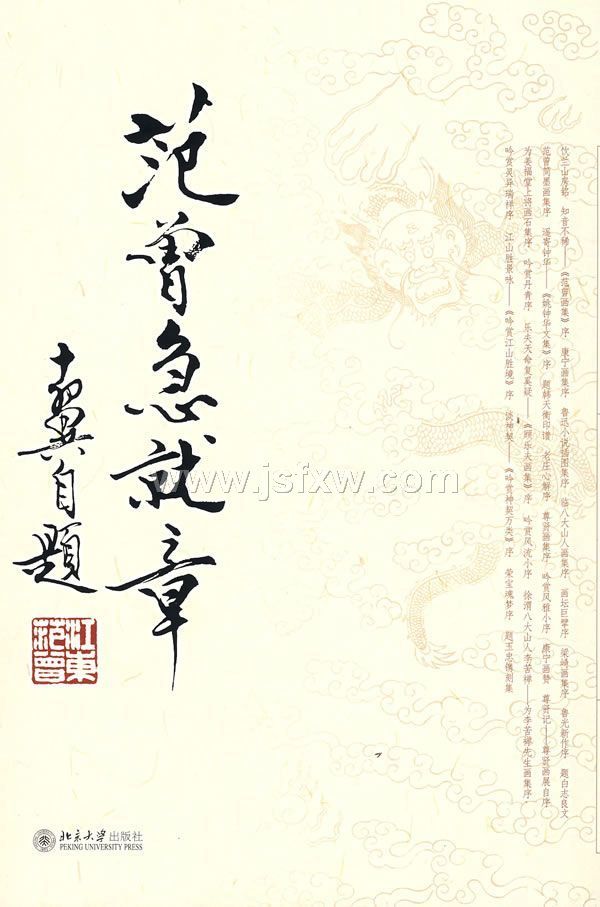 饮兰山房铭 知音不稀——《范曾画集》序 康宁画集序 鲁迅小说插图集序 临八大山人画集序 画坛巨擘序 梁崎画集序 鲁光新作序 题白志良文
范曾简墨画集序 遥寄钟华——《姚钟华文集》序 题韩天衡印谱 老庄心解序 尊贤画集序 吟赏风雅小序 康宁画赞 尊贤记——尊贤画展自序
为姜福堂上将画石集序 吟赏丹青序 乐夫天命复奚疑——《顾乐夫画集》序 吟赏风流小序 徐渭八大山人李苦禅——为李苦禅先生画集序
吟赏灵异瑞祥序 江山胜景咏——《吟赏江山胜境》序 谈神契——《吟赏神契万类》序 荣宝魂梦序 题玉忠镌刻集
范曾急就章
十翼自题
江東范曾
www.jsfxw.com
北京大学出版社
PEKING UNIVERSITY PRESS